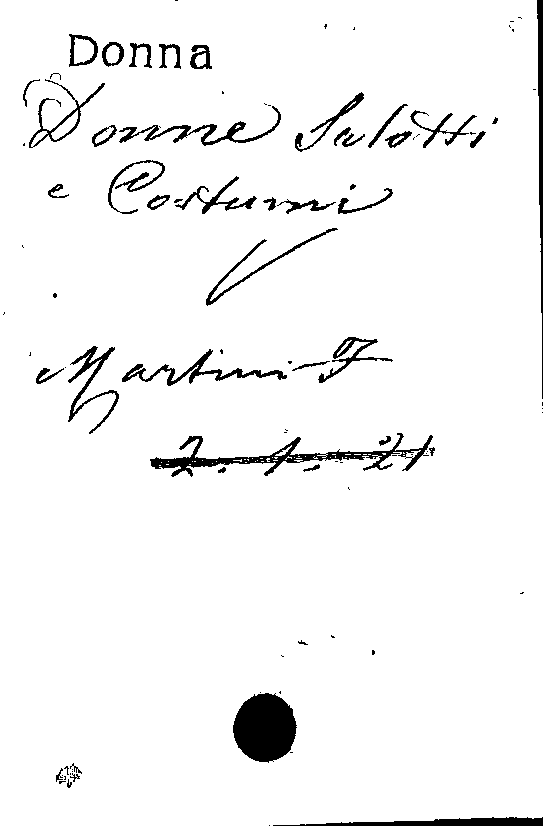 Donna
Donne Salotti
e Costumi
Martini F
2. 1. 21